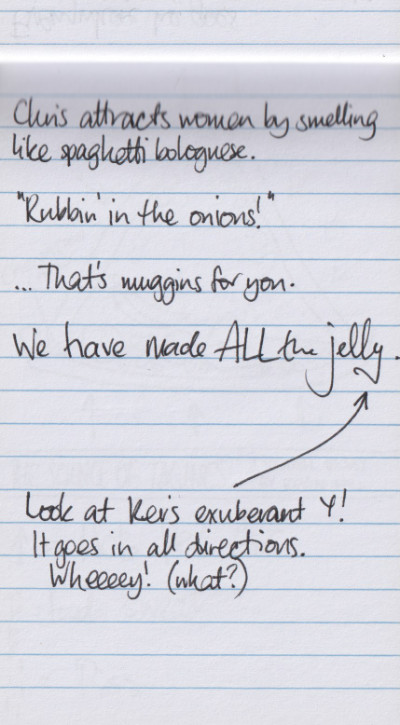 Chris attracts women by smelling
like spaghetti bolognese.
"Rubbin' in the onions!"
... That's muggins for you.
We have made ALL the jelly.
Look at Kev's exuberant Y!
It goes in all directions.
Wheeeey! (what?)